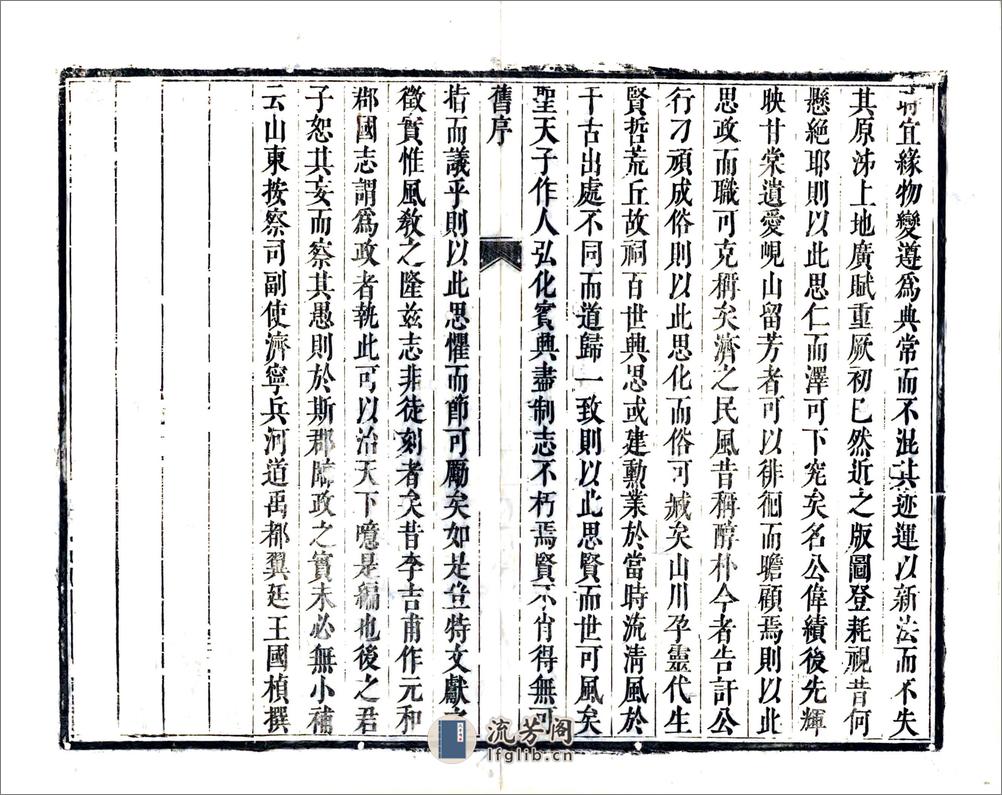 宜緣物變遵為典常而不混其迹運以新法而不失
其原泲上地廣賦重厥初已然近之版圖登耗視昔何
懸絕耶則以此思仁而澤可下究矣名公偉績後先輝
映甘棠遺愛峴山留芳者可以徘徊而瞻顧焉則以此
思政而職可克稱矣濟之民風昔稱醇朴今者告訐公
行刁頑成俗則以此思化而俗可臧矣山川孕靈代生
賢哲荒丘故祠百世興思或建勳業於當時流清風於
千古出處不同而道歸一致則以此思賢而世可風矣
聖天子作人弘化賓興盡制志不朽焉賢不肖得無可
舊序
指而議乎則以此思懼而節可勵矣如是豈特文獻
徵實惟風教之隆茲志非徒刻者矣昔李吉甫作元和
郡國志謂爲政者執此可以治天下噫是編也後之君
子恕其妄而察其愚則於斯郡政之實未必無小補
云山東按察司副使濟寧兵河道禹都翼廷王國楨撰
流芳阁
lfglib.cn